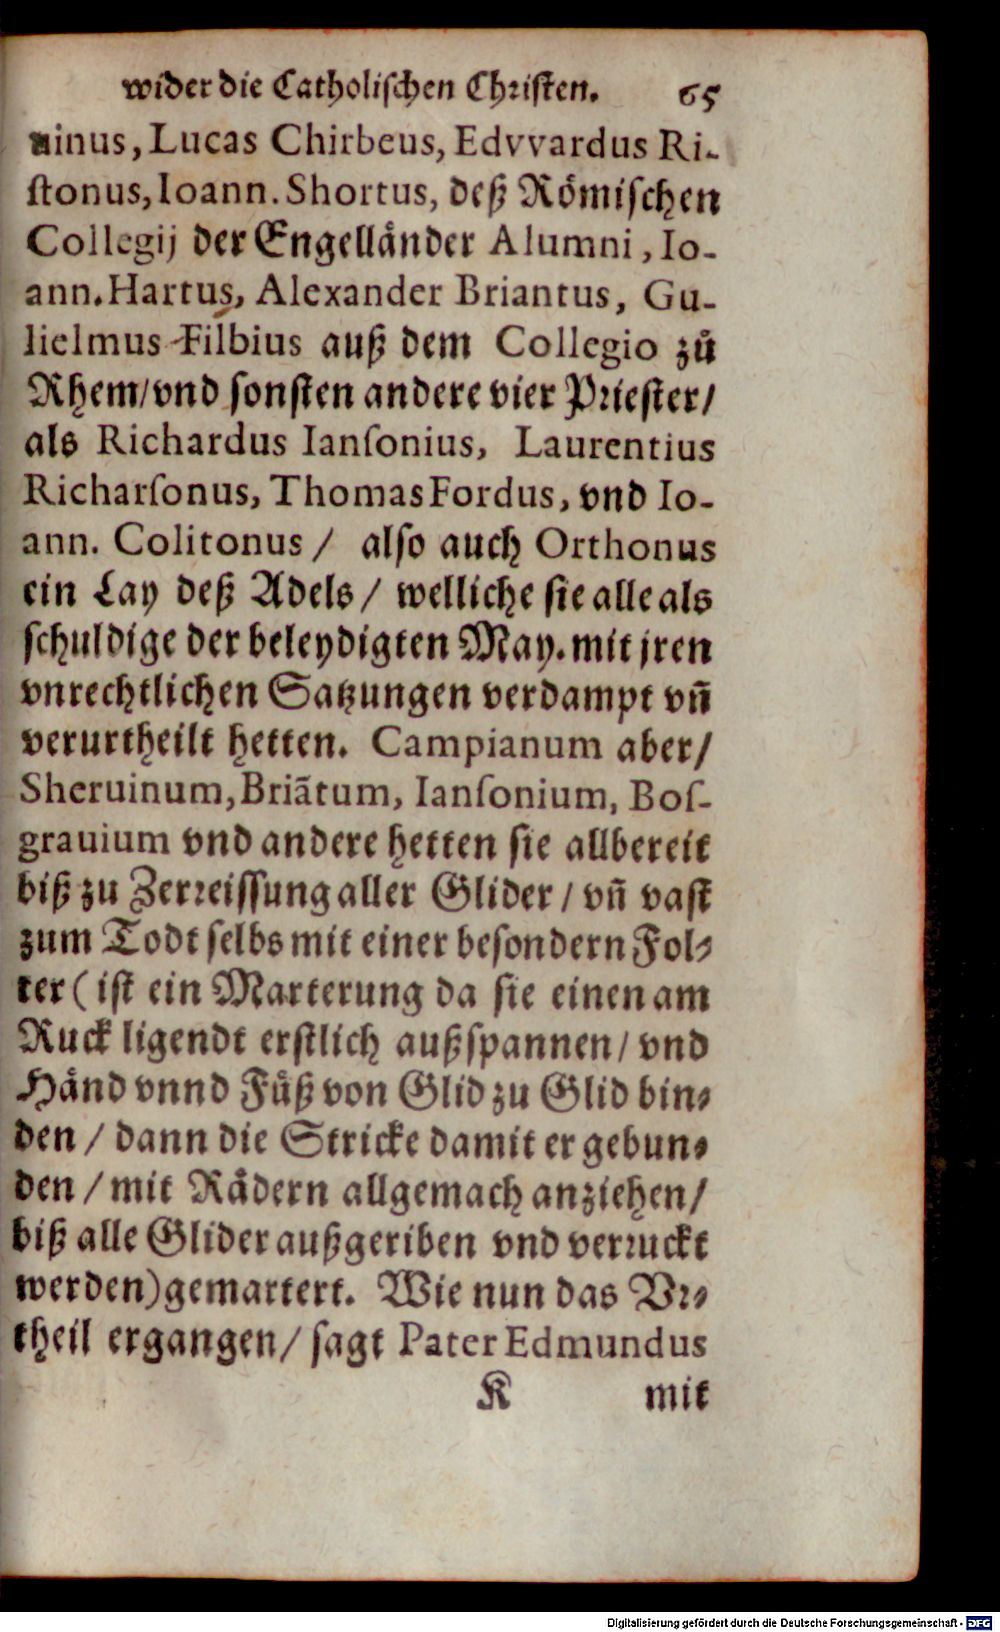 wider die Catholischen Christen. 65
uinus, Lucas Chirbeus, Edvvardus Ri-
ſtonus, Ioann. Shortus, deß Roͤmiſchen
Collegij der Engellaͤnder Alumni, Io-
ann. Hartus, Alexander Briantus, Gu-
lielmus Filbius auß dem Collegio zuͦ
Rhem/vnd ſonſten andere vier Prieſter/
als Richardus Ianſonius, Laurentius
Richarſonus, Thomas Fordus, vnd Io-
ann. Colitonus / alſo auch Orthonus
ein Lay deß Adels / welliche ſie alle als
ſchuldige der beleydigten May. mit jren
vnrechtlichen Satzungen verdampt vñ
verurtheilt hetten. Campianum aber/
Sheruinum, Briãtum, Ianſonium, Boſ-
grauium vnd andere hetten ſie allbereit
biß zu Zerreiſſung aller Glider / vñ vaſt
zum Todt ſelbs mit einer beſondern Fol-
ter (iſt ein Marterung da ſie einen am
Ruck ligendt erſtlich außſpannen / vnd
Haͤnd vnnd Fuͤß von Glid zu Glid bin-
den / dann die Stricke damit er gebun-
den / mit Raͤdern allgemach anziehen/
biß alle Glider außgeriben vnd verruckt
werden) gemartert. Wie nun das Vr-
theil ergangen / ſagt Pater Edmundus
K mit
Digitalisierung gefördert durch die Deutsche Forschungsgemeinschaft - DFG